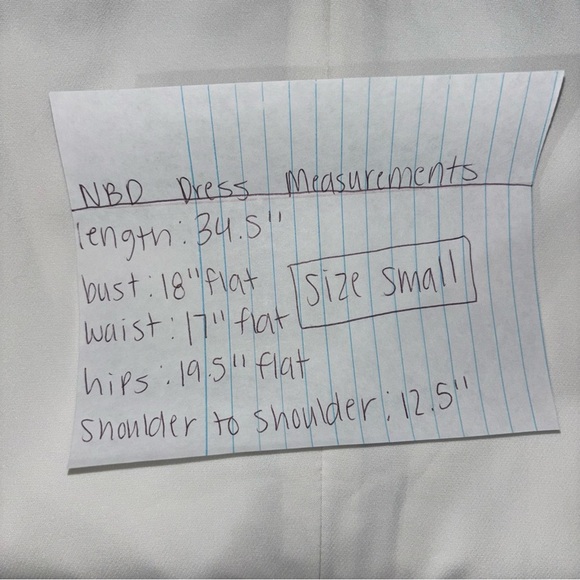 NBD Dress Measurements
length: 34.5"
bust: 18" flat
Size Small
waist: 17" flat
hips: 19.5" flat
shoulder to shoulder: 12.5"